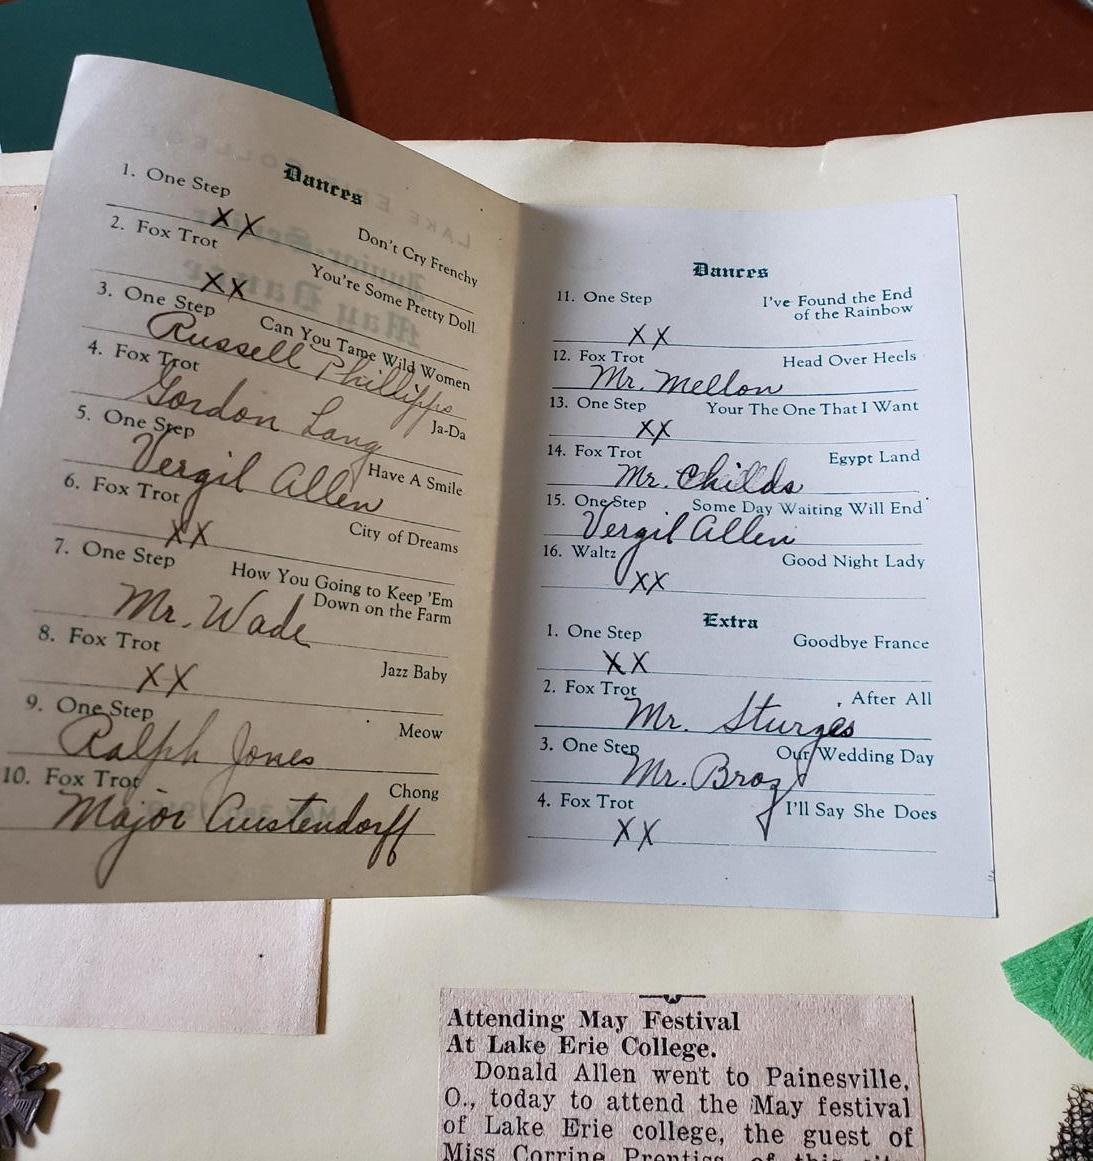 Dances
1. One Step
Don't Cry Frenchy
XX
2. Fox Trot
You're Some Pretty Doll
XX
3. One Step
Can You Tame Wild Women
Russell Phillipps
4. Fox Trot
Ja-Da
Gordon Lang
5. One Step
Have A Smile
Vergil Allen
6. Fox Trot
City of Dreams
XX
7. One Step
How You Going to Keep 'Em
Down on the Farm
Mr. Wade
8. Fox Trot
Jazz Baby
XX
9. One Step
Meow
Ralph Jones
10. Fox Trot
Chong
Major Austendorff
Dances
11. One Step
I've Found the End
of the Rainbow
XX
12. Fox Trot
Head Over Heels
Mr. Mellon
13. One Step
Your The One That I Want
XX
14. Fox Trot
Egypt Land
Mr. Childs
15. One Step
Some Day Waiting Will End
Vergil Allen
16. Waltz
Good Night Lady
XX
Extra
1. One Step
Goodbye France
XX
2. Fox Trot
After All
Mr. Sturges
3. One Step
Our Wedding Day
Mr. Broz
4. Fox Trot
I'll Say She Does
XX
Attending May Festival
At Lake Erie College.
Donald Allen went to Painesville,
O., today to attend the May festival
of Lake Erie college, the guest of
Miss Corrine Prentiss, of this city